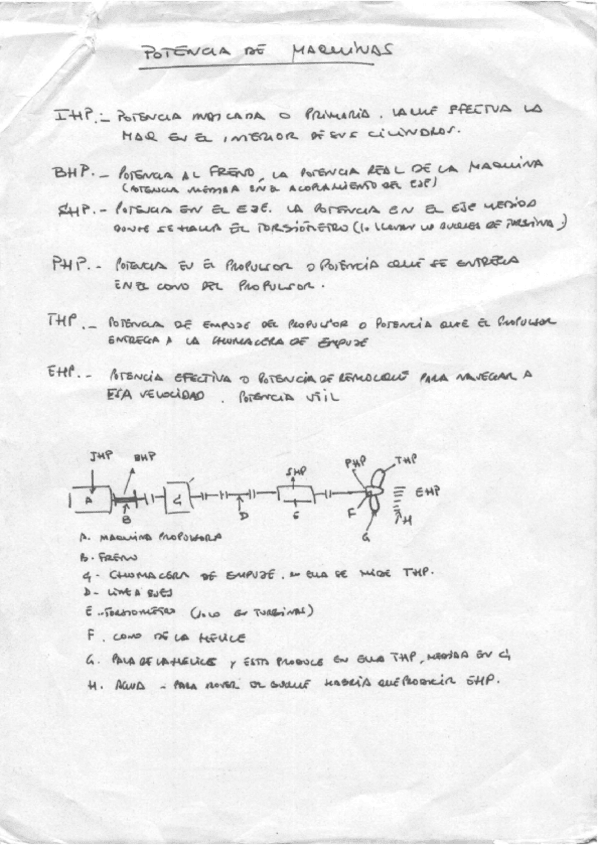 POTENCIA DE MAQUINAS
IHP.- POTENCIA INDICADA O PRIMARIA. LA QUE EFECTUA LA
MAQ EN EL INTERIOR DE SUS CILINDROS.
BHP.- POTENCIA AL FRENO, LA POTENCIA REAL DE LA MAQUINA
(POTENCIA MEDIDA EN EL ACOPLAMIENTO DEL EJE)
SHP.- POTENCIA EN EL EJE. LA POTENCIA EN EL EJE MEDIDO
DONDE SE HALLA EL TORSIOMETRO (LO LLEVAN LOS BUQUES DE TURBINA)
PHP.- POTENCIA EN EL PROPULSOR O POTENCIA QUE SE ENTREGA
EN EL CONO DEL PROPULSOR.
THP.- POTENCIA DE EMPUJE DEL PROPULSOR O POTENCIA QUE EL PROPULSOR
ENTREGA A LA CHUMACERA DE EMPUJE
EHP.- POTENCIA EFECTIVA O POTENCIA DE REMOLQUE PARA NAVEGAR A
ESA VELOCIDAD. POTENCIA UTIL
IHP BHP SHP PHP THP
A G EHP
B D E F H
G
A. MAQUINA PROPULSORA
B. FRENO
G- CHUMACERA DE EMPUJE. EN ELLA SE MIDE THP.
D- LINEA EJES
E-TORSIOMETRO (SOLO EN TURBINAS)
F. CONO DE LA HELICE
G. PALA DE LA HELICE Y ESTA PRODUCE EN ELLA THP, MEDIDA EN C,
H. AGUA - PARA MOVER EL BUQUE HABRIA QUE PRODUCIR EHP.